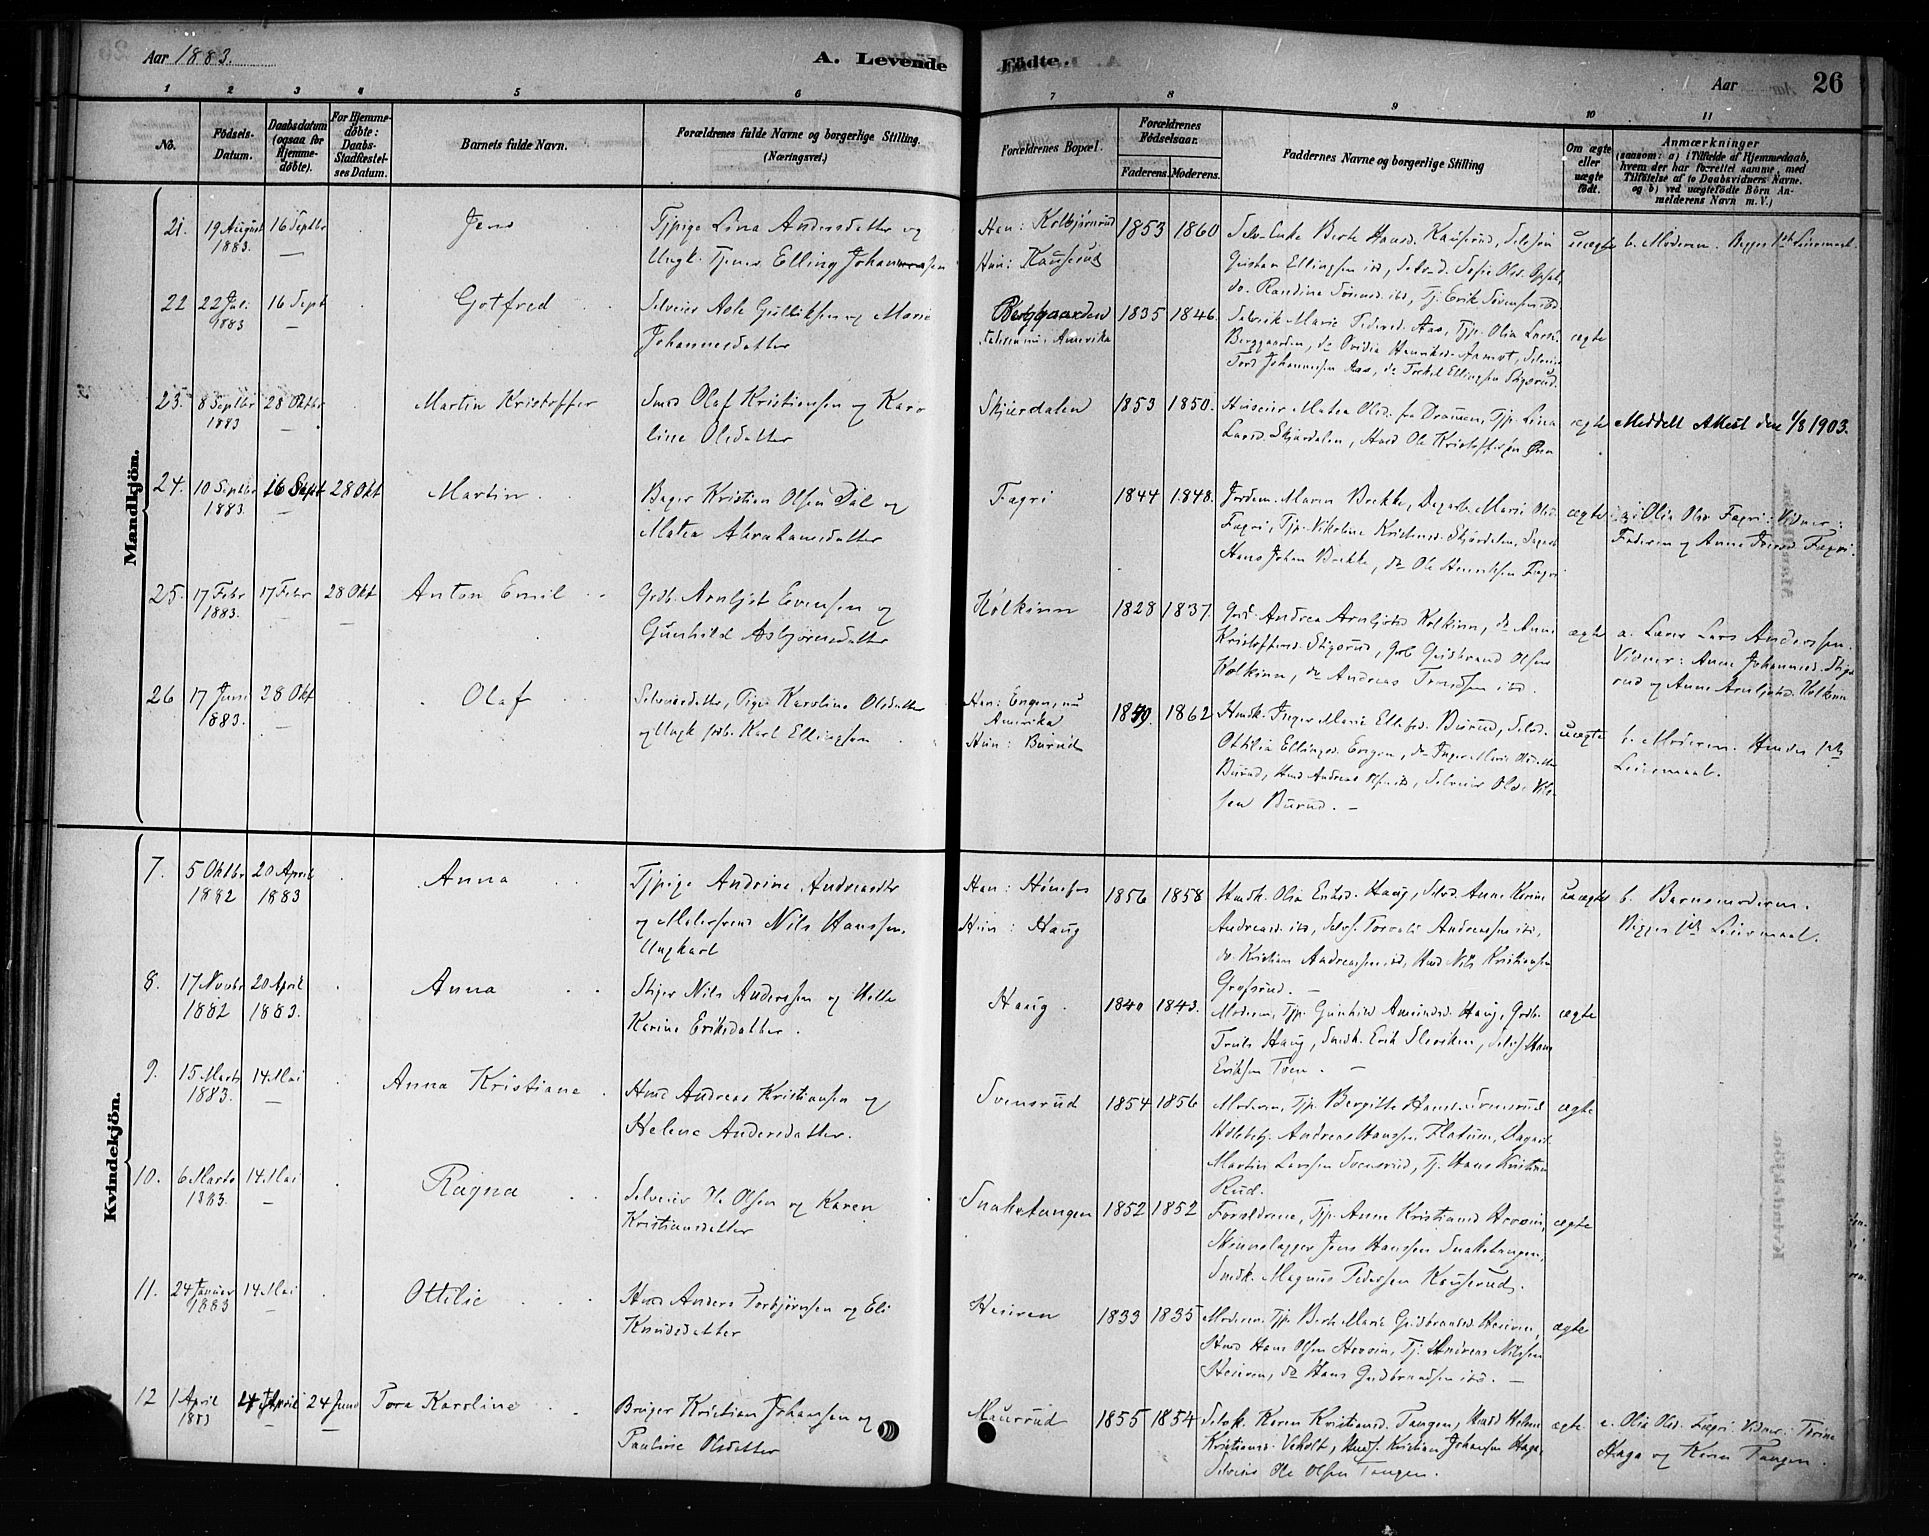 Aar 1883.
A. Levende Födte.
Aar
26
1 2 3 4 5 6 7 8 9 10 11
No.
Födsels-Datum.
Daabsdatum (ogsaa for Hjemme-döbte).
For Hjemme-döbte: Daabs-Stadfæstel-ses Datum.
Barnets fulde Navn.
Forældrenes fulde Navne og borgerlige Stilling.
(Næringsvei.)
Forældrenes Bopæl.
Forældrenes Fødselsaar.
Faderens. Moderens.
Faddernes Navne og borgerlige Stilling
Om ægte eller uægte født.
Anmærkninger
(saasom: a) i Tilfælde af Hjemmedaab, hvem der har forrettet samme, med Tilføielse af to Daabsvidners Navne. og b) ved uægtefödte Börn An-melderens Navn m. V.)
Mandkjön.
21. 19 August 1883. 16 Septbr — Jens
Tjpige Lina Andersdatter og
Ungk. Tjener Elling Johannessen
Han: Kolbjørnrud
Hun: Kauserud
1853 1860
Selv. Enke Berte Hansd. Kauserud, Selvsøn
Gustav Ellingsen ibd, Selvd. Sofie Olsd. Opsal,
do. Randine Sørensd. ibd, Tj. Erik Sørensen ibd
uægte
b. Moderen. Begges 1ste Leiermaal.
22 22 Juli 1883 16 Sept — Gotfred
Selveier Asle Gulliksen og Marie
Johannesdatter
Berggaarden
Faderen nu i Amerika
1835 1846.
Selveik Marie Pedersd. Aas, Tjp. Olia Larsd.
Berggaarden, do Ovidia Henriksd. Aamot, Selveier
Tord Johannesen Aas, do Torkel Ellingsen Stigsrud.
ægte
23. 8 Septbr 1883 28 Oktbr — Martin Kristoffer
Smed Olaf Kristiansen og Karo
line Olsdatter
Skjærdalen
1853 1850.
Huseier Matea Olsd. fra Drammen, Tjp. Lina
Larsd. Skjærdalen, Husd Ole Kristoffersen
ægte
Meddelt Attest den 1/8 1903.
24. 10 Septbr 1883. 16 Sept — 28 Okt Martin
Bager Kristian Olsen Dal og
Matea Abrahamsdatter
Fagri
1844 1848.
Jordem. Maren Brekke, Dagarb. Marie Olsd.
Fagri, Tjp. Nikoline Kristensd. Skjærdalen, Dagarb
Hans Johan Brekke, do Ole Henriksen Fagri
ægte
a: Olia Olsd. Fagri. Vidner:
Faderen og Anne Iversd Fagri.
25. 17 Febr 1883. 17 Febr 28 Okt — Anton Emil
Grdb. Arnljot Evensen og
Gunhild Asbjørnsdatter
Kolkinn
1828 1837.
Grd. Andrea Arnljotsd. Kolkinn, do Anne
Kristoffersd. Stigsrud, Grb Gudbrand Olsen
Kolkinn, do Andreas Trondsen ibd.
ægte
a. Lærer Lars Anderssen.
Vidner: Anne Johannesd. Stigs
rud og Anne Arnljotsd. Kolkinn
26 17 Juni 1883. 28 Okt — Olaf
Selveierdatter, Pige Karoline Olsdatter
og Ungk. Grdb. Karl Ellingsen
Han: Engen, nu
Amerika
Hun: Burud
1859. 1862
Husmk. Inger Marie Ellefsd. Burud, Selvd.
Othilia Ellingsd. Engen, do Inger Marie Olsdatter
Burud, Husd Andreas Olsen ibd, Selveier Ole Nil-
sen Burud. —
uægte
b. Moderen. Hendes 1ste
Leiermaal.
Kvindekjön.
7. 5 Oktbr 1882 20 April 1883 Anna
Tjpige Andrine Andreasdtr
og Møllersvend Nils Hanssen.
Ungkarl
Han: Hønefos
Hun: Haug
1856 1858
Husmk. Olia Eriksd. Haug, Selvd. Anne Karine
Andreasd. ibd, Selvs. Torvald Andreassen ibd,
do. Kristian Andreassen ibd, Husd Nils Kristiansen
Grøsrud. —
uægte
b. Barnemoderen.
Begges 1ste Leiermaal.
8. 17 Novbr 1882 20 April 1883. Anna
Skjer Nils Anderssen og Helle
Karine Eriksdatter.
Haug
1840 1843.
Moderen, Tjp. Gunhild Amundsd. Haug, Grdb.
Truls Haug, Smdk. Erik Sleviken, Selvs. Hans
Eriksen Toen. —
ægte
9. 15 Marts 1883. 14 Mai — Anna Kristiane
Husd Andreas Kristiansen og
Helene Andersdatter.
Svensrud
1854 1856
Moderen, Tjp. Bergitte Hansd. Svensrud
Andreas Hanssen Flatum, Dagarb.
Martin Larssen Svensrud, Tj. Hans Kristian
Rud.
ægte
10. 6 Marts 1883. 14 Mai — Ragna
Selveier Ole Olsen og Karen
Kristiansdatter
Snaketangen
1852 1852
Forældrene, Tjp. Anne Kristiansd Hovin,
Skinnelægger Jens Hanssen Snaketangen,
Smdk. Magnus Pedersen Kauserud.
ægte
11. 24 Januar 1883 14 Mai — Ottilie
Husd Anders Torbjørnsen og Eli
Knudsdatter
Heieren
1833 1835
Moderen, Tjp. Berte Marie Gudbrandsd. Heieren,
Husd Hans Olsen Hovin, Tj. Andreas Nilssen
Heieren, do Hans Gudbrandsen ibd. —
ægte
12 1 April 1883 24 April — 24 Juni — Tora Karoline
Bruger Kristian Johansen og
Pauline Olsdatter
Maurrud
1855 1854
Selvk. Karen Kristiansd. Tangen, Husd Helene
Kristiansd. Veholt, Husf. Kristian Johansen Haga,
Selveier Ole Olsen Tangen.
ægte
a. Olia Olsd. Fagri. Vidner: Torine
Haga og Karen Tangen.